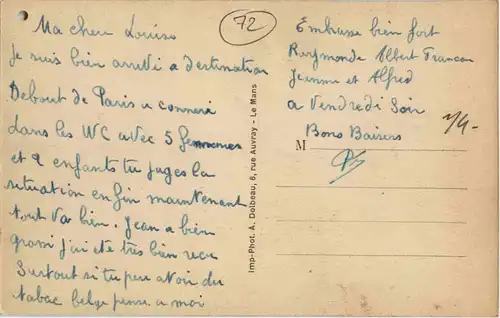 72
Ma cher Louise
Je suis bien arrivé a destination
Debout de Paris a
dans les WC avec 5 femmes
et 2 enfants tu juges la
situation enfin maintenant
tout va bien. Jean a bien
grossi j'ai eté très bien recu
Surtout si tu peu avoir du
tabac belge pense a moi
Imp-Phot. A. Dolbeau, 6, rue Auvray - Le Mans
Embrasse bien fort
Raymonde Albert
Jeanne et Alfred
a Vendredi Soir
Bons Baisers
M